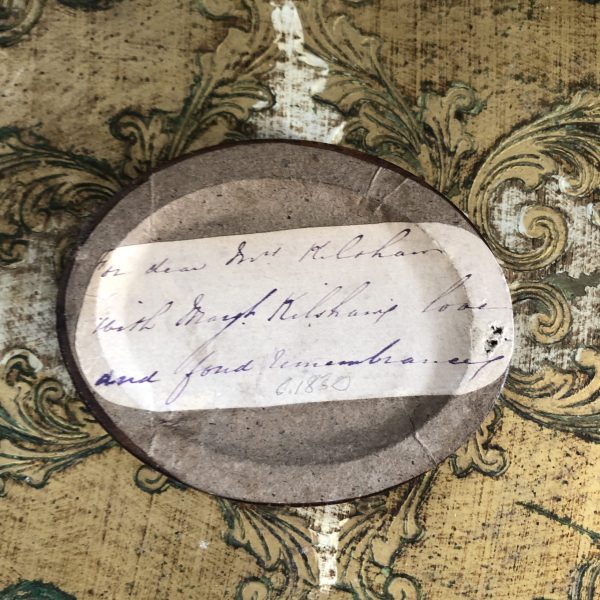 For dear Mrs Kilsham
with Margt. Kilsham's love
and fond remembrances
C.1830